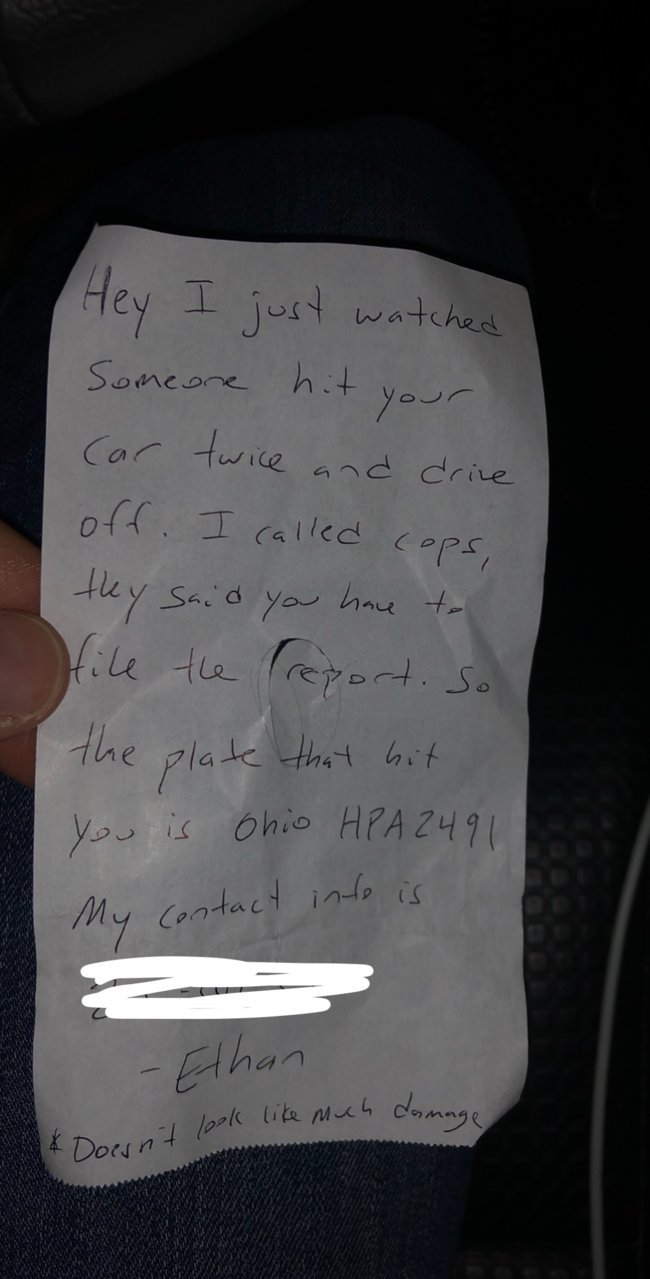 Hey I just watched
Someone hit your
Car twice and drive
off. I called cops,
they said you have to
file the report. So
the plate that hit
you is Ohio HPA2491
My contact info is
- Ethan
* Doesn't look like much damage